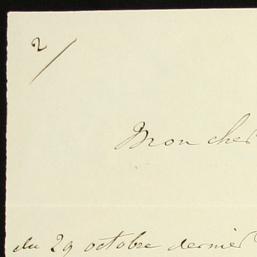 2/
Mon cher
du 29 octobre dernier